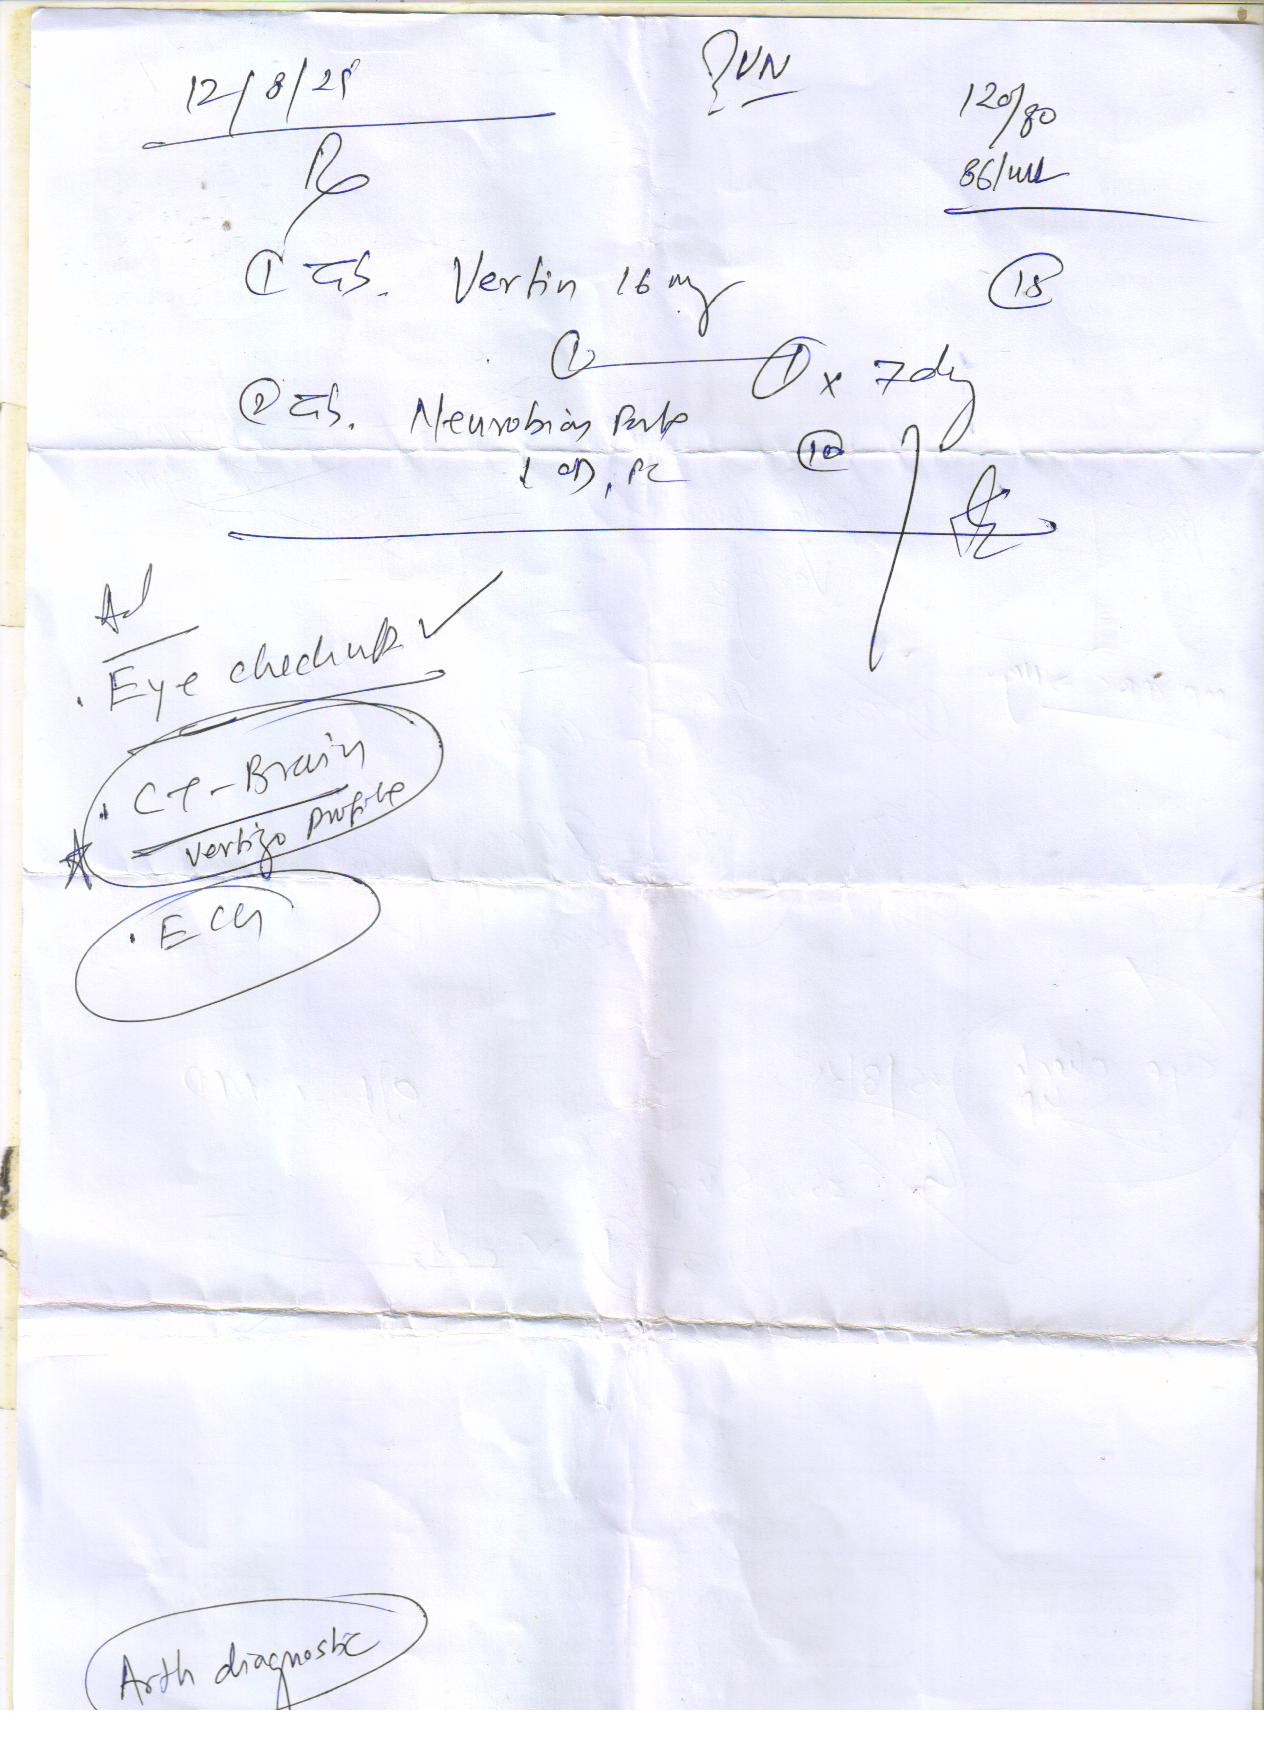 12/8/25
? VN
120/80
86/min
Rx
① Tab. Vertin 16 mg
⑱
① — ① x 7 day
② Tab. Neurobion Forte
⑩
1 OD, PC
Ad
. Eye checkup ✓
. CT - Brain
Vertigo profile
. ECG
Arth diagnostic